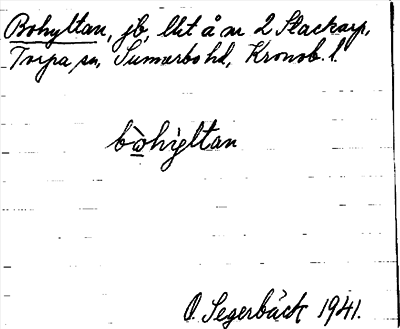 Bohyltan, jb, litt å nr 2 Slackarp,
Torpa sn, Sunnerbo hd, Kronob. l.
bòhyltan
O. Segerbäck 1941.